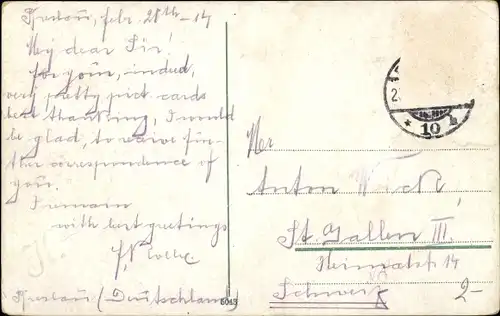 Breslau, febr. 28th - 14
My dear Sir!
For your, indeed,
very pretty pict. cards
best thanking, I would
be glad, to reaive fur-
ther correspondence of
you.
I remain
with best greetings
Breslau (Deutschland)
5043
10
Her
Anton
St. Gallen III.
Heimatstr 14
Schweiz
2-